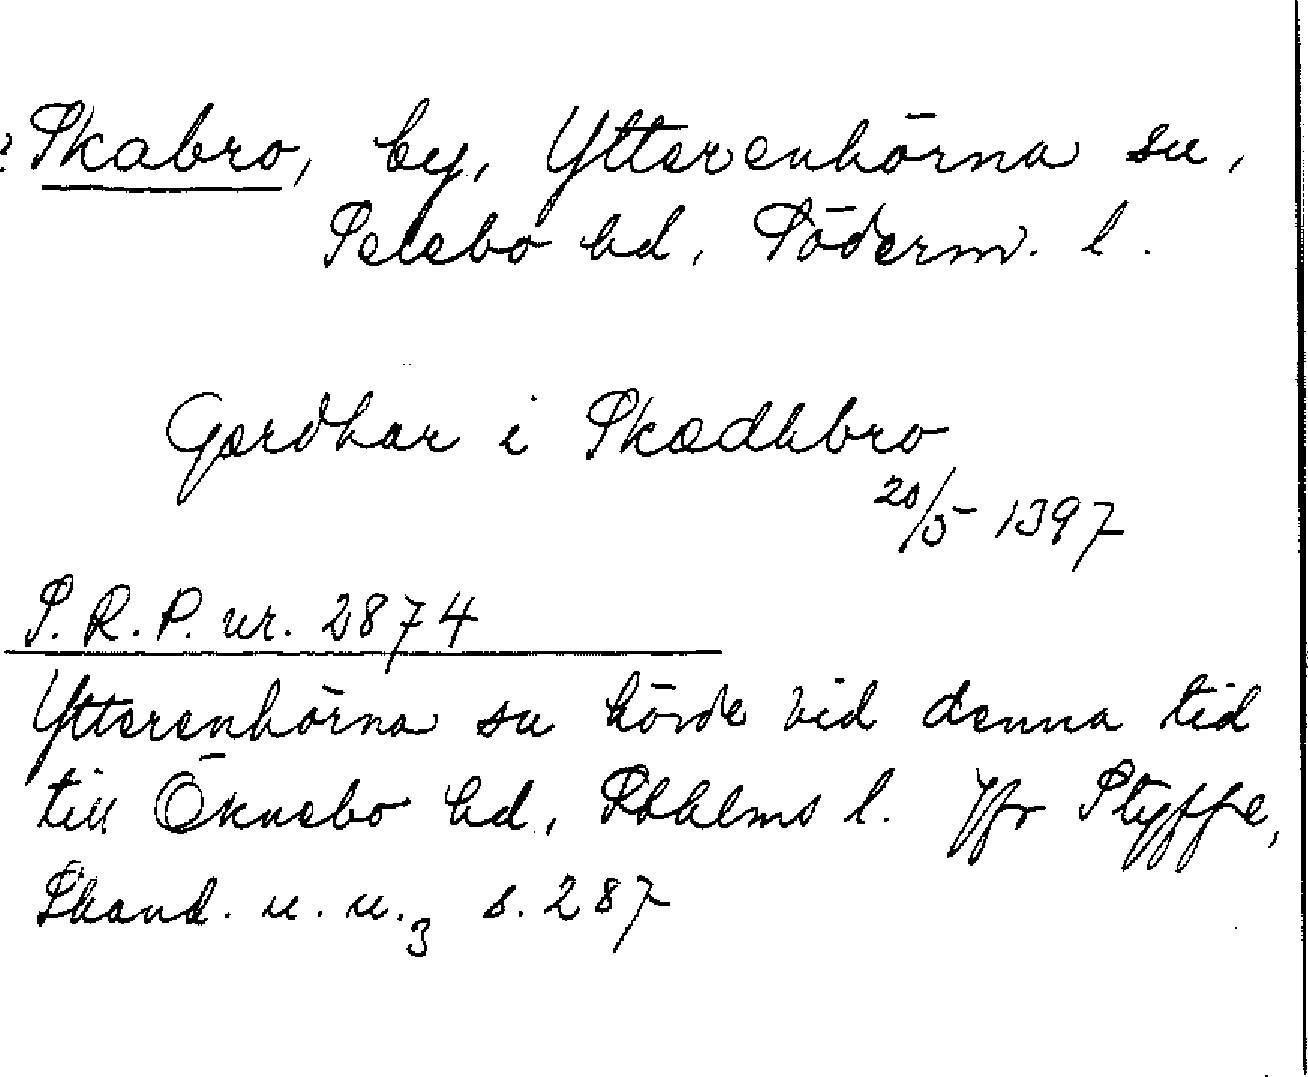 ? Skabro, by, Ytterenhörna sn,
Selebo hd, Söderm. l.
Gærdhar i Skædhbro
20/5 1397
S. R. P. nr. 2874
Ytterenhörna sn hörde vid denna tid
till Öknebo hd, Sthlms l. Jfr Styffe,
Skand. u. u.3 s. 287